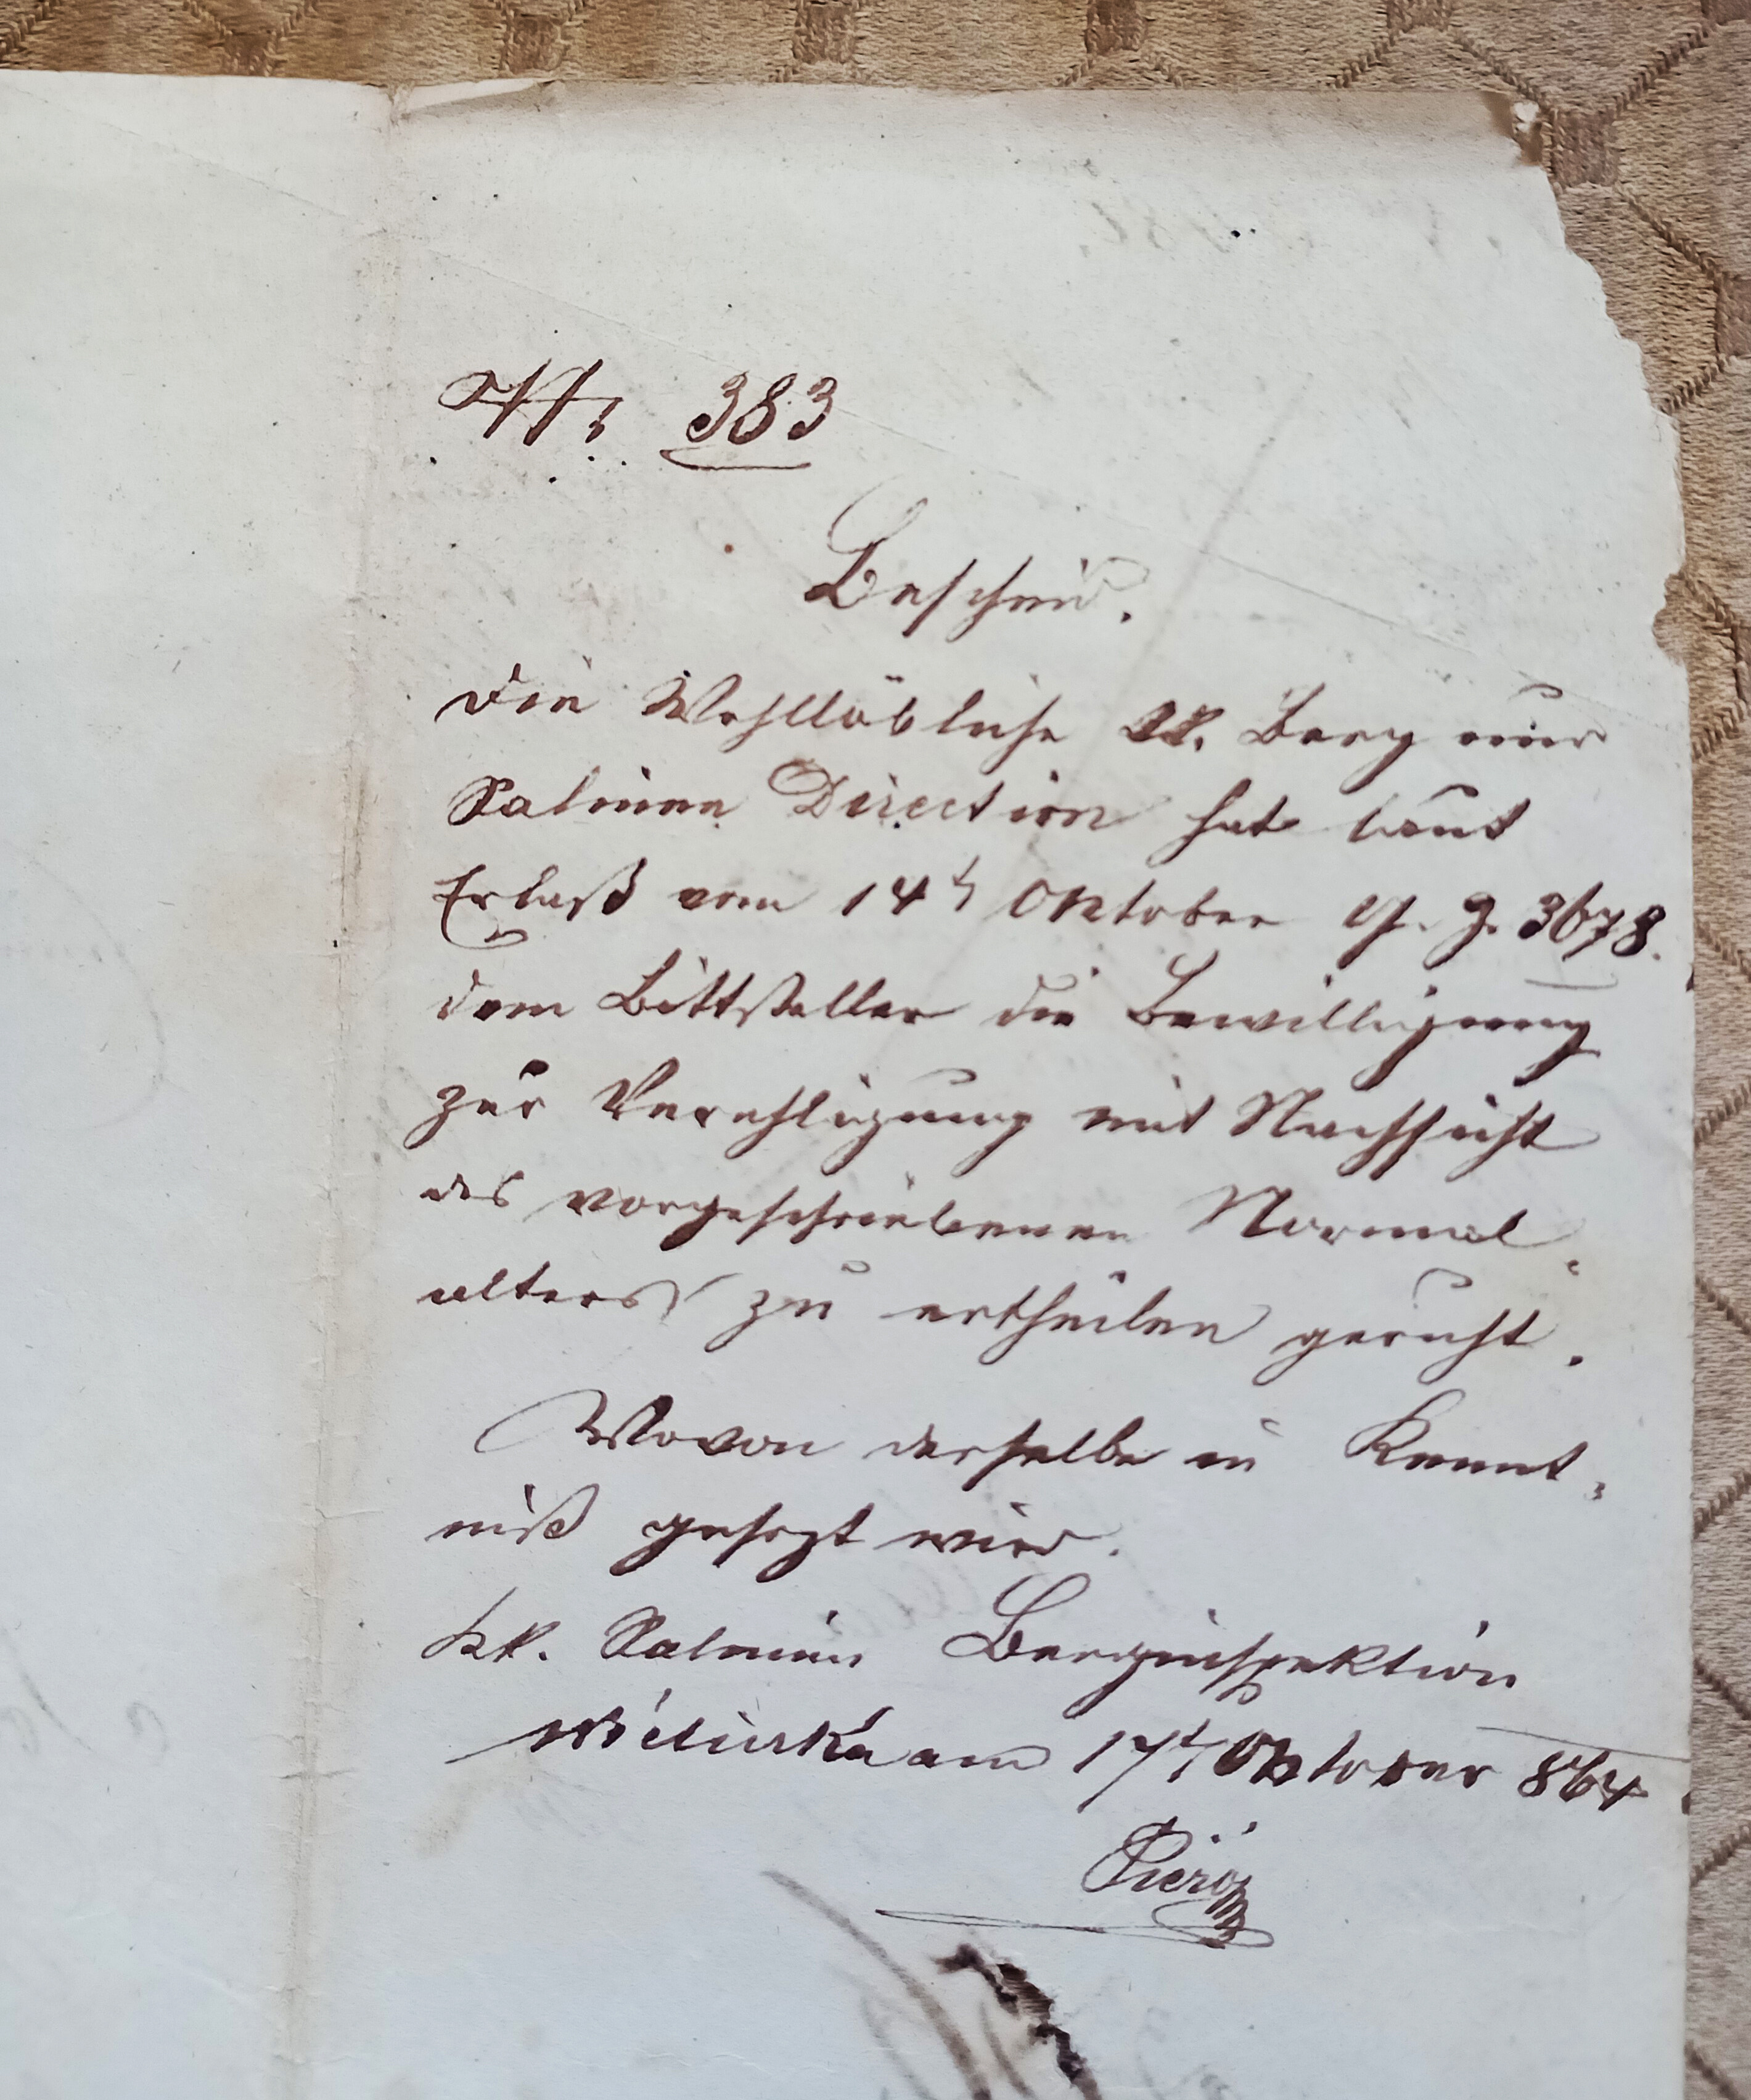 Nr 383
Bescheid.
Die Wohllöbliche kk. Berg und
Salinen Direction hat laut
Erlaß vom 14t Oktober g. Z. 3678.
dem Bittsteller die Bewilligung
zur Verehligung mit Nachsicht
des vorgeschriebenen Normal-
alters zu ertheilen geruht.
Wovon derselbe in Kennt-
niß gesezt wird.
kk. Salinen Berginspektion
Wieliczka am 17t Oktober 864